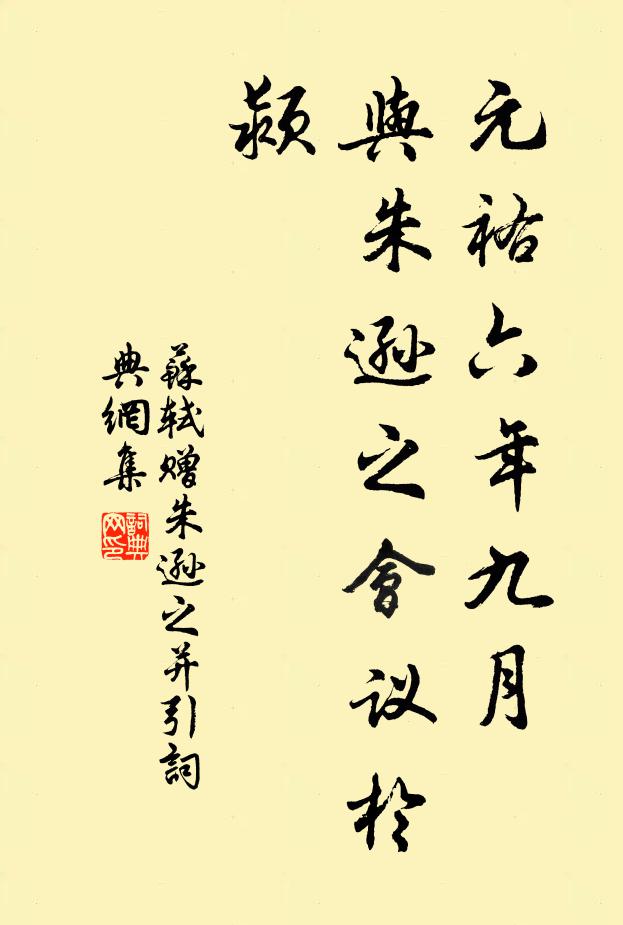 元祐六年九月
與朱遜之會议於
颍
蘇軾赠朱遜之并引詞
典網集
詞典
网印